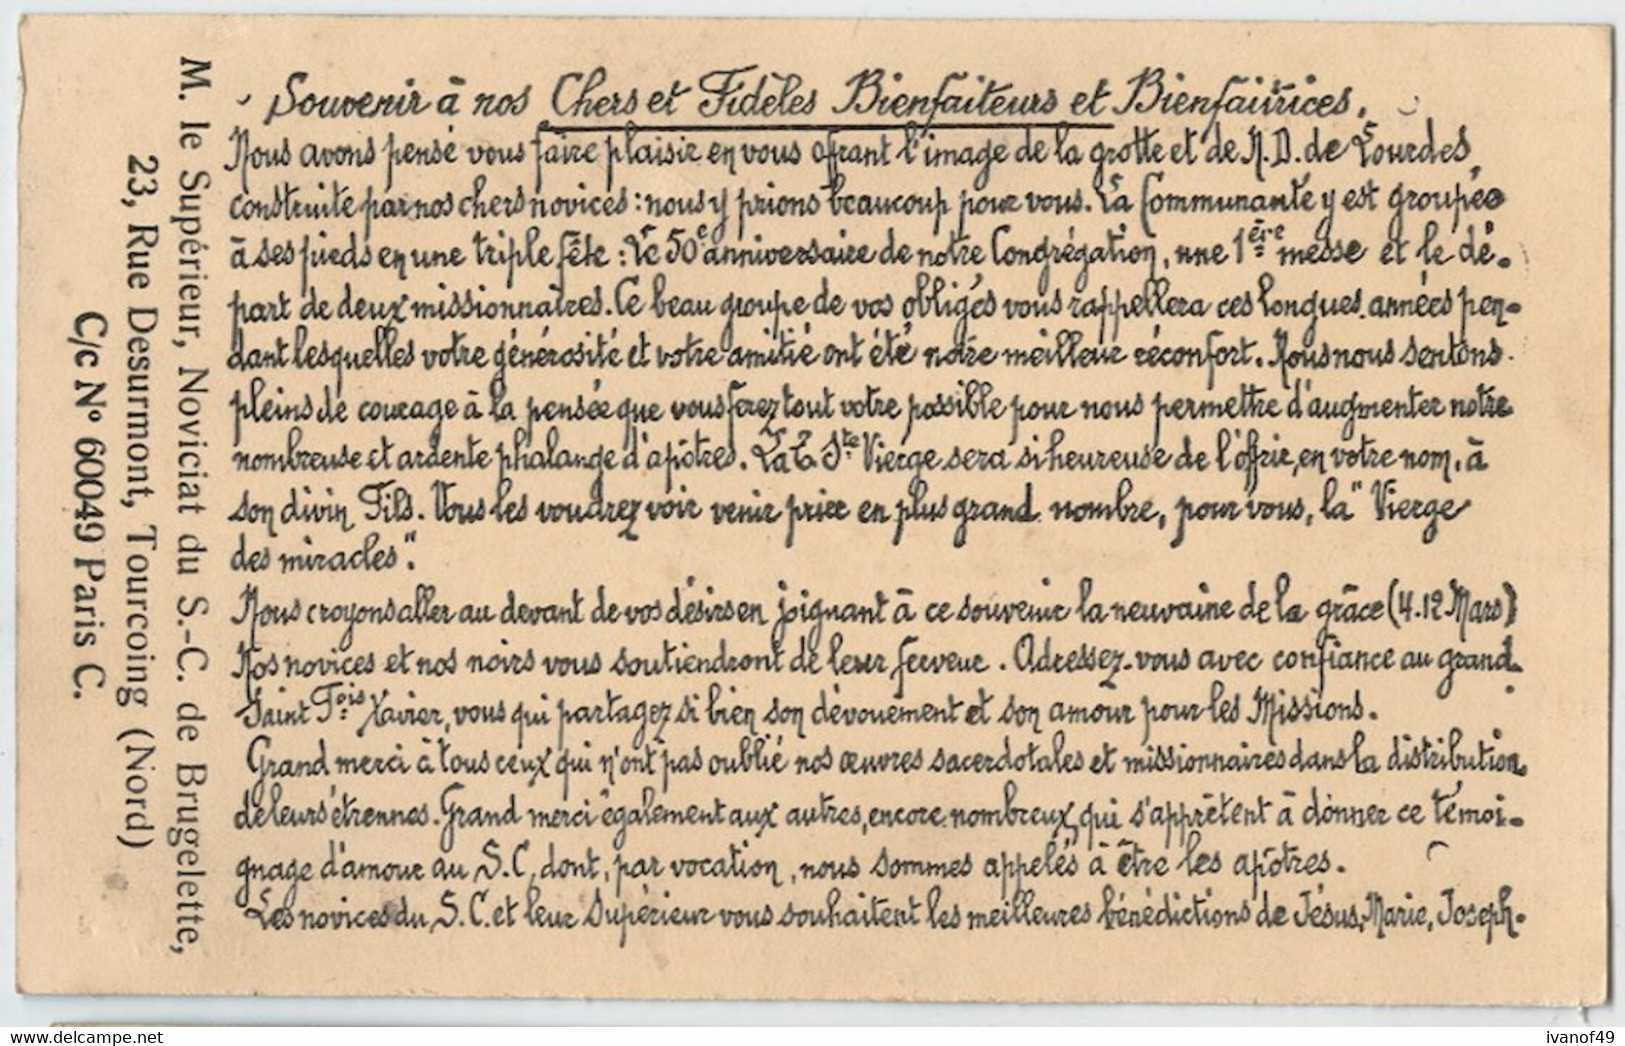 Souvenir à nos Chers et Fidèles Bienfaiteurs et Bienfaitrices.
Nous avons pensé vous faire plaisir en vous offrant l'image de la grotte et de N. D. de Lourdes,
construite par nos chers novices : nous y prions beaucoup pour vous. La Communauté y est groupée
à ses pieds en une triple fête : Le 50e anniversaire de notre Congrégation, une 1ère messe et le dé-
part de deux missionnaires. Ce beau groupe de vos obligés vous rappellera ces longues années pen-
dant lesquelles votre générosité et votre amitié ont été notre meilleur réconfort. Nous nous sentons
pleins de courage à la pensée que vous ferez tout votre possible pour nous permettre d'augmenter notre
nombreuse et ardente phalange d'apôtres. La T. Ste Vierge sera si heureuse de l'offrir, en votre nom, à
son divin Fils. Vous les voudrez voir venir prier en plus grand nombre, pour vous, la "Vierge
des miracles".
Nous croyons aller au devant de vos désirs en joignant à ce souvenir la neuvaine de la grâce (4-12 Mars)
Nos novices et nos noirs vous soutiendront de leur ferveur. Adressez-vous avec confiance au grand
Saint Fois Xavier, vous qui partagez si bien son dévouement et son amour pour les Missions.
Grand merci à tous ceux qui n'ont pas oublié nos œuvres sacerdotales et missionnaires dans la distribution
de leurs étrennes. Grand merci également aux autres, encore nombreux, qui s'apprêtent à donner ce témoi-
gnage d'amour au S. C, dont, par vocation, nous sommes appelés à être les apôtres.
Les novices du S. C. et leur Supérieur vous souhaitent les meilleures bénédictions de Jésus, Marie, Joseph.
M. le Supérieur, Noviciat du S.-C. de Brugelette,
23, Rue Desurmont, Tourcoing (Nord)
C/c N° 60049 Paris C.
ivanof49